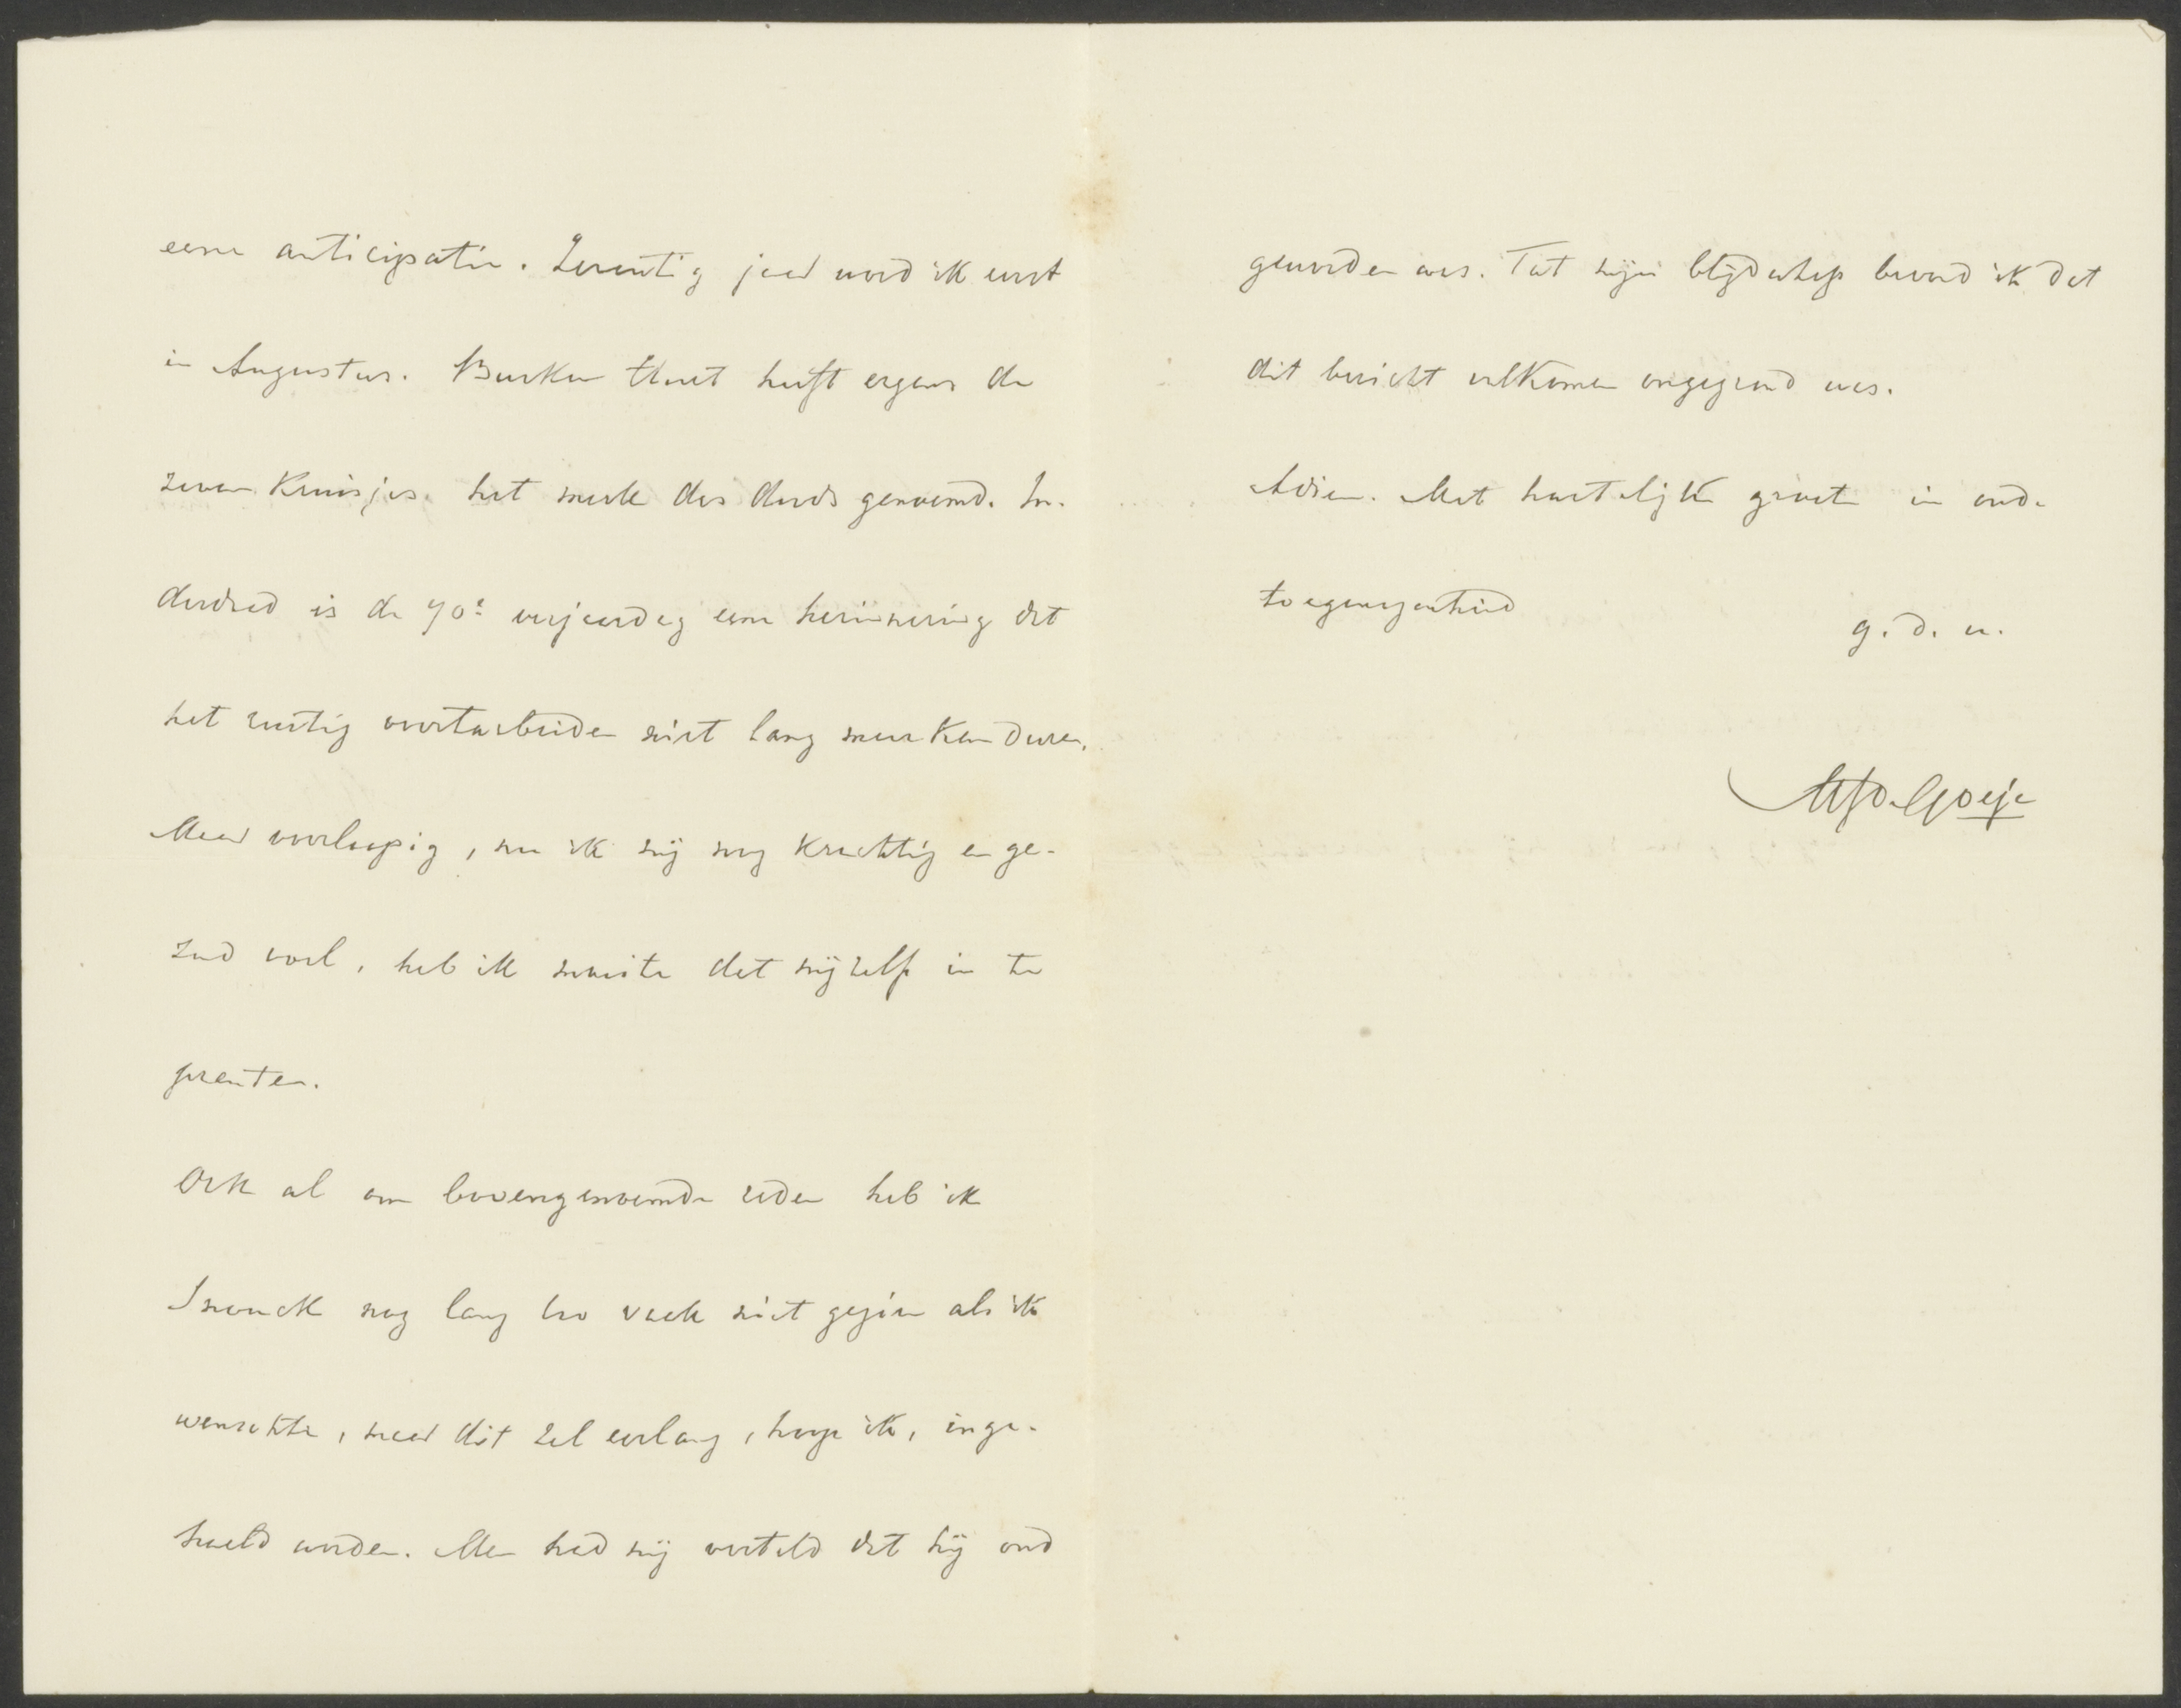 eene anticipatie. Zeventig jaar word ik eerst
in Augustus. Busken Huet heeft ergens de
zeven kruisjes het merk des doods genoemd. In-
derdaad is de 70e verjaardag eene herinnering dat
het rustig voortarbeiden niet lang meer kan duren.
Maar voorloopig, nu ik mij nog krachtig en ge-
zond voel, heb ik moeite dat mijzelf in te
prenten.
Ook al om bovengenoemde reden heb ik
Snouck nog lang zoo vaak niet gezien als ik
wenschte, maar dit zal eerlang, hoop ik, inge-
haald worden. Men had mij verteld dat hij oud
geworden was. Tot mijn blijdschap bevond ik dat
dit bericht volkomen ongegrond was.
Adieu. Met hartelijke groeten in oude
toegenegenheid
g. d. u.
MJ de Goeje